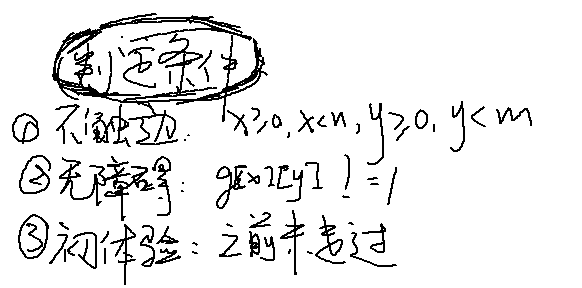 判定条件
① 不触边: x≥0, x<n, y≥0, y<m
② 无障碍: g[x][y] != 1
③ 初体验: 之前未走过